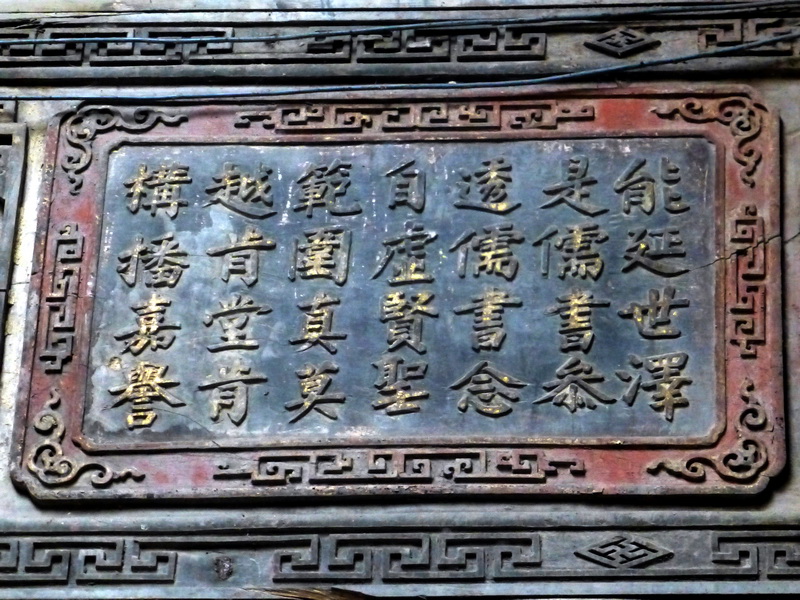 能延世澤
是儒書參
透儒書念
自虛賢聖
範圍真莫
越肯堂肯
構播嘉譽